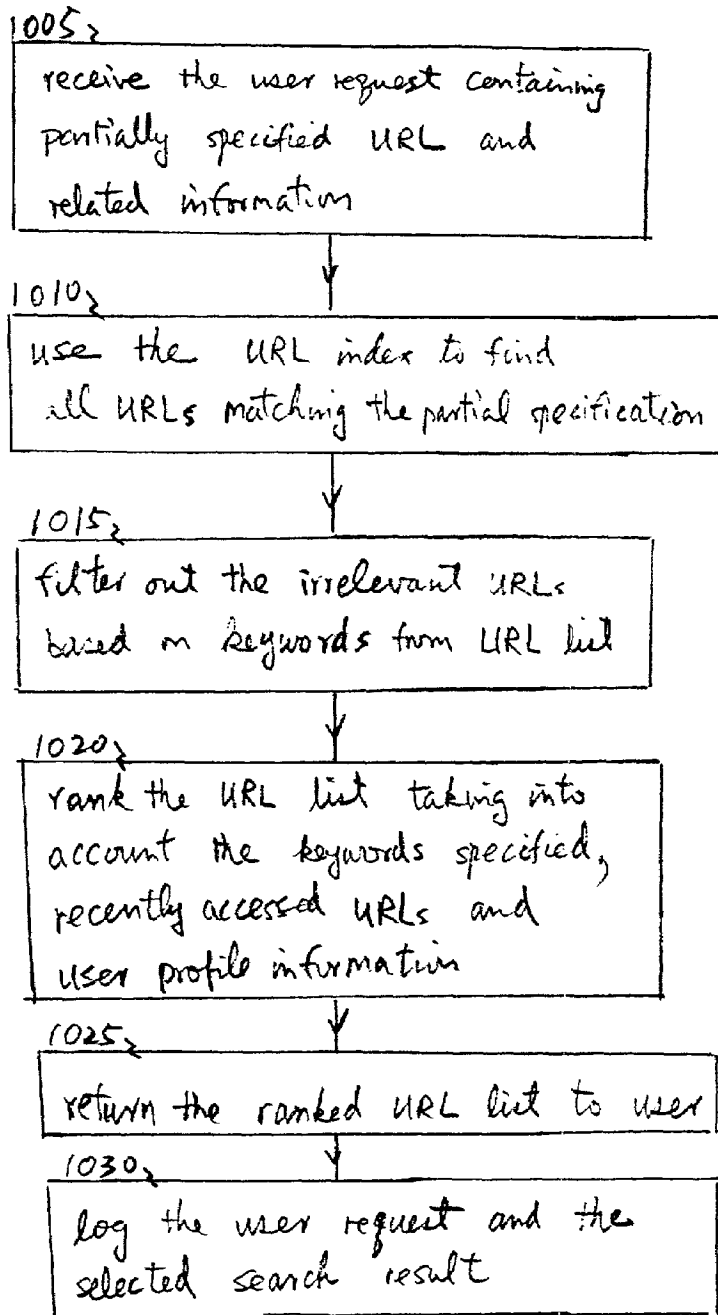 1005
receive the user request containing
partially specified URL and
related information
1010
use the URL index to find
all URLs matching the partial specification
1015
filter out the irrelevant URLs
based on keywords from URL list
1020
rank the URL list taking into
account the keywords specified,
recently accessed URLs and
user profile information
1025
return the ranked URL list to user
1030
log the user request and the
selected search result